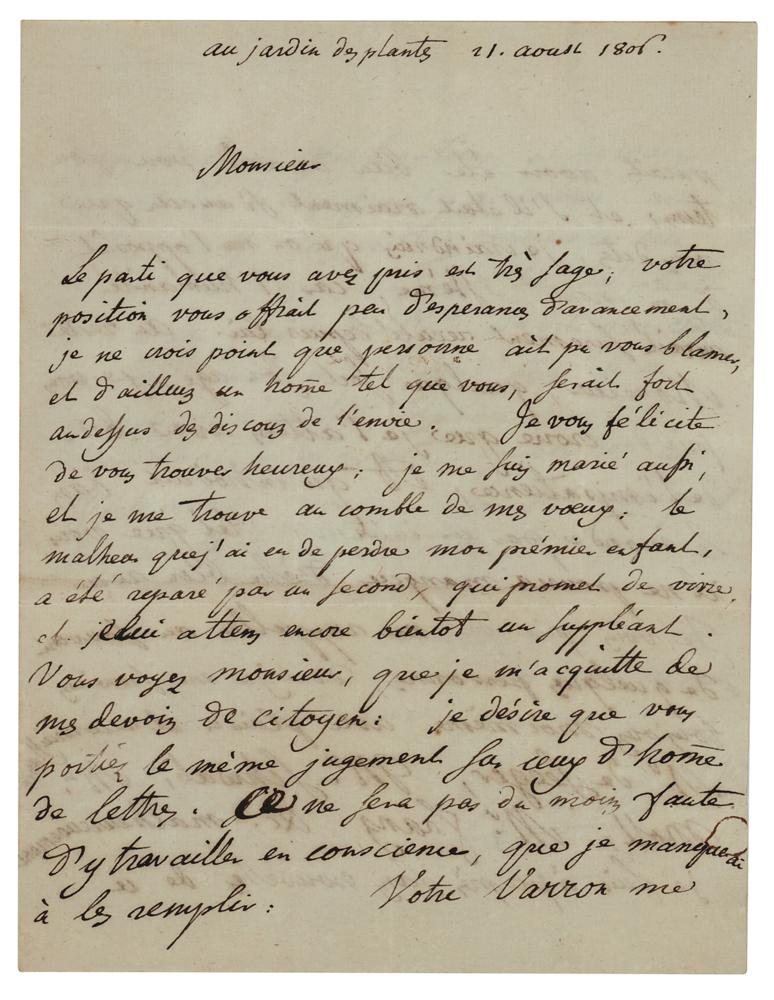 au jardin des plantes 21. aoust 1806.
Monsieur
Le parti que vous avez pris est très sage; votre
position vous offrait peu d'esperances d'avancement,
je ne crois point que personne ait pu vous blamer,
et d'ailleurs un home tel que vous, serait fort
audessus des discours de l'envie. Je vous félicite
de vous trouver heureux; je me suis marié aussi,
et je me trouve au comble de mes vœux; le
malheur que j'ai eu de perdre mon prémier enfant,
a été reparé par un second, qui promet de vivre,
et je lui attens encore bientot un suppléant.
Vous voyez monsieur, que je m'acquitte de
mes devoirs de citoyen: je désire que vous
portiez le même jugement sur ceux d'home
de lettres. Ce ne sera pas du moins faute
d'y travailler en conscience, que je manquerai
à les remplir: Votre Varron me